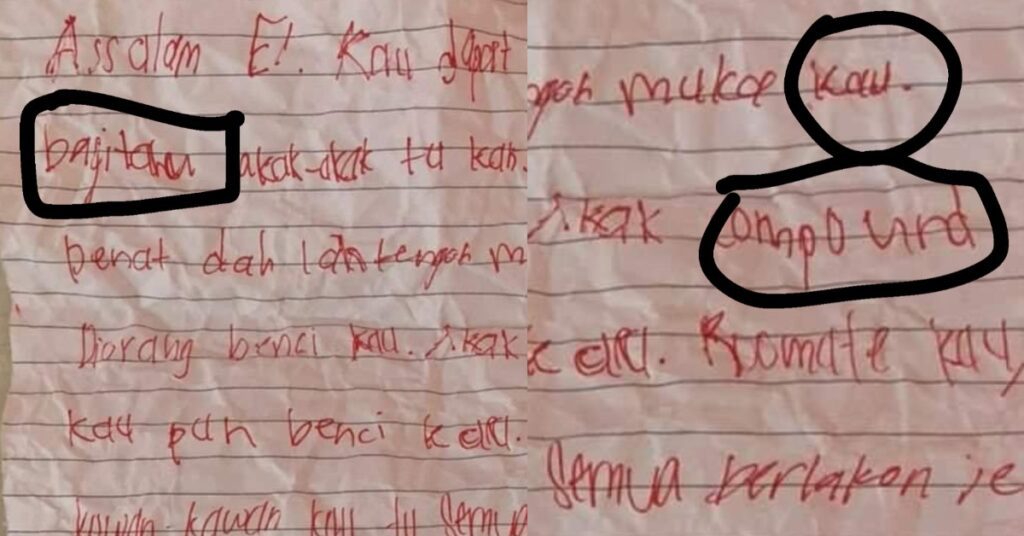 Assalam E!. Kau dapat
bagitahu akak-akak tu kan.
penat dah lah tengoh m
Diorang benci kau. Akak
kau pun benci kau.
kawan-kawan kau tu semua
ngoh muka kau.
Akak compound
kau. Roomate kau,
semua berlakon je